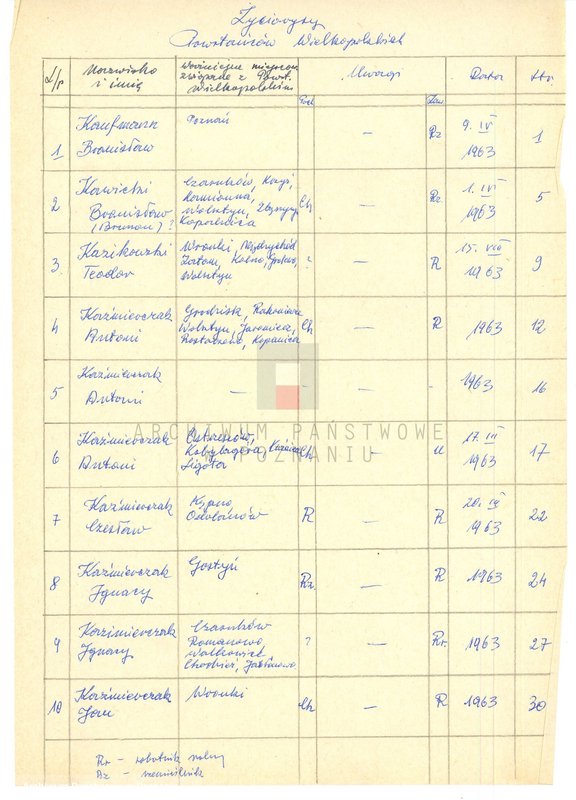 Życiorysy
Powstańców Wielkopolskich
L/p
Nazwisko
i imię
ważniejsze miejscow.
związane z Powst.
Wielkopolskim
Poch
Uwagi
Zaw
Data
Str.
1
Kaufmann
Bronisław
Poznań
—
Rz
9. IV
1963
1
2
Kawicki
Bronisław
(Brunon)?
Czarnków,
Kamionna,
Wolsztyn, Zbąszyń
Kopanica
Ch
—
Rz
1. IV
1963
5
3.
Kazikowski
Teodor
Wronki, Międzychód
Kolno,
Wolsztyn
?
—
R
15. VIII
1963
9
4
Kaźmierczak
Antoni
Grodzisk, Rakoniewice
Wolsztyn, Jaromierz,
Rostarzewo, Kopanica
Ch
—
R
1963
12
5
Kaźmierczak
Antoni
—
-
—
-
1963
16
ARCHIWUM PAŃSTWOWE
W POZNANIU
6
Kaźmierczak
Antoni
Ostrzeszów,
Kobylagóra,
Ligota
Ch
U
17. III
1963
17
7
Kaźmierczak
Czesław
Odolanów
R
—
R
20. IV
1963
22
8
Kaźmierczak
Ignacy
Gostyń
Rz.
—
R
1963
24
9
Kaźmierczak
Ignacy
Czarnków
Romanowo
Walkowice
Chodzież,
?
—
Rr.
1963
27
10
Kaźmierczak
Jan
Wronki
Ch
—
R
1963
30
Rr - robotnik rolny
Rz - rzemieślnik